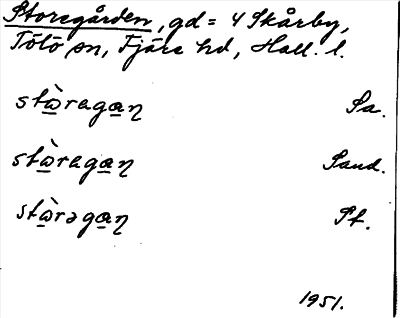 Storegården, gd = 4 Skårby,
Tölö sn, Fjäre hd, Hall. l.
stὼ̲raga̲ŋ Sa.
stὼ̲raga̲ŋ Sand.
stὼ̲rəga̲ŋ St.
1951.